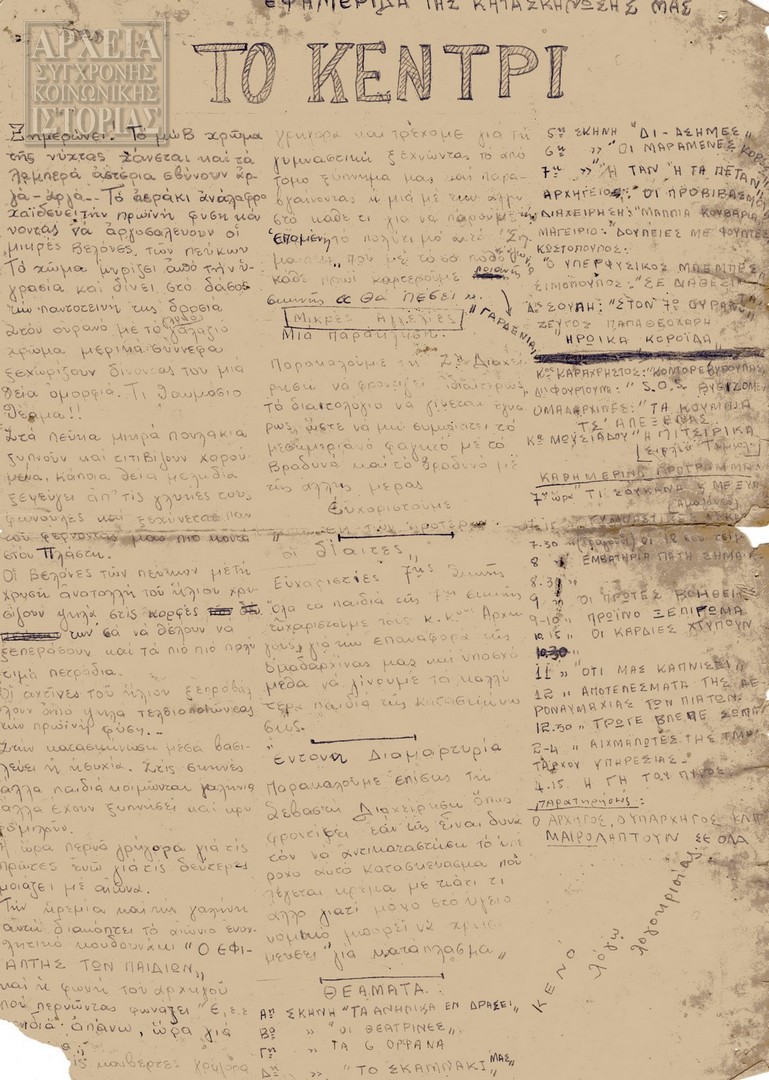 ΕΦΗΜΕΡΙΔΑ ΤΗΣ ΚΑΤΑΣΚΗΝΩΣΗΣ ΜΑΣ
ΑΡΧΕΙΑ
ΣΥΓΧΡΟΝΗΣ
ΚΟΙΝΩΝΙΚΗΣ
ΙΣΤΟΡΙΑΣ
ΤΟ ΚΕΝΤΡΙ
Ξημερώνει. Τό μώβ χρῶμα
τῆς νύχτας χάνεται καί τά
λαμπερά ἀστέρια σβύνουν ἀρ
γά-ἀργά.. Τό ἀεράκι ἀνάλαφρο
χαϊδεύει τήν πρωϊνή φύση κά
νοντας νά ἀργοσαλεύουν οἱ
μικρές βελόνες τῶν πεύκων
Τό χῶμα μυρίζει ἀπό τήν ὑ
γρασία καί δίνει στό δάσος
τήν παντοτεινή της δροσιά
Στόν οὐρανό μέ τό γλυκό γαλάζιο
χρῶμα μερικά σύννεφα
ξεχωρίζουν δίνοντας του μια
θεία ὀμορφιά. Τι θαυμάσιο
θέαμα!!
Στά πεῦκα μικρά πουλάκια
ξυπνοῦν καί τιτιβίζουν χαρού
μενα, κάποια θεία μελωδία
ξεφεύγει ἀπ' τίς γλυκιές τους
φωνοῦλες καί ξεχύνεται παν
τοῦ φέρνοντας μας πιό κοντά
στόν Πλάστη.
Οἱ βελόνες τῶν πεύκων μέ τή
χρυσή ἀνατολή τοῦ ἥλιου χρυ
σίζουν ψηλά στίς κορφές
των σά νά θέλουν νά
ξεπεράσουν καί τά πιό πιό πολύ
τιμα πετράδια.
Οἱ ἀχτίνες τοῦ ἥλιου ξεπροβάλ
λουν ἀπό ψηλά τελειοποιώντας
τήν πρωϊνή φύση..
Στήν κατασκήνωση μέσα βασι
λεύει ἡ ἡσυχία. Στίς σκηνές
ἄλλα παιδιά κοιμῶνται γαλήνια
ἄλλα ἔχουν ξυπνήσει καί κρυ
φομιλοῦν.
Ἡ ὥρα περνᾶ γρήγορα γιά τίς
πρῶτες ἐνῶ γιά τίς δεύτερες
μοιάζει μέ αἰῶνα.
Τήν ἠρεμία καί τήν γαλήνη
αὐτή διακόπτει τό αἰώνιο ἐνοχ
λητικό κουδουνάκι "Ο ΕΦΙ-
ΑΛΤΗΣ ΤΩΝ ΠΑΙΔΙΩΝ„
καί ἡ φωνή τοῦ ἀρχηγοῦ
πού περνώντας φωνάζει "Ε,ε,ε
παιδιά ἀπάνω, ὥρα γιά
κουβέρτες γρήγορα
γρήγορα καί τρέχομε γιά τή
γυμναστική ξεχνώντας τό ἀπό
τομο ξύπνημα μας καί παρα
βγαίνοντας ἡ μιά μέ τήν ἄλλη
στό κάθε τι γιά νά πάρουμε τή
ἑπομένη τό πολύτιμο αὐτό "Ση
μαιάκι„ πού μέ τόσο πόθο
κάθε πρωϊ καρτεροῦμε ποιανῆς
σκηνῆς «θά πέσει».
"ΓΑΡΔΕΝΙΑ"
Μικρές Ἀγγελίες
Μιά παράκληση.
Παρακαλοῦμε τή Ζη Διαχεί
ρηση νά φροντίζει ἰδιαιτέρως
τό διαιτολόγιο νά γίνεται ἔγκαι
ρως, ὥστε νά μή συμπίπτει τό
μεσημεριανό φαγητό μέ τό
βραδυνό καί τό βραδυνό μέ
τῆς ἄλλης μέρας
Εὐχαριστοῦμε
ἐκ τῶν προτέρων
οἱ δίαιτες„
Εὐχαριστίες 7ης σκηνῆς
Ὅλα τά παιδιά τῆς 7ης σκηνῆς
εὐχαριστοῦμε τούς κ.κους Ἀρχη
γούς γιά τήν ἐπαναφορά τῆς
ὁμαδαρχίνας μας καί ὑποσχό
μεθα νά γίνουμε τά καλλί
τερα παιδιά τῆς κατασκηνώ
σεως.
"Ἔντονη Διαμαρτυρία
Παρακαλοῦμε ἐπίσης τή
Σεβαστή Διαχείριση ὅπως
φροντίσει ἐάν τῆς εἶναι δυνα
τόν νά ἀντικαταστήσει τό ὑπέ
ροχο αὐτό κατασκεύασμα πού
λέγεται κρέμα μέ κάτι τι
ἄλλο γιατί μόνο στό ὑγειο
νομικό μπορεῖ νά χρησι
μεύσει "γιά κατάπλασμα„
ΘΕΑΜΑΤΑ
Αη ΣΚΗΝΗ "ΤΑ ΑΝΗΛΙΚΑ ΕΝ ΔΡΑΣΕΙ„
Βα » "ΟΙ ΘΕΑΤΡΙΝΕΣ„
Γη » "ΤΑ 6 ΟΡΦΑΝΑ
Δη » "ΤΟ ΣΚΑΜΝΑΚΙ ΜΑΣ„
5η ΣΚΗΝΗ "ΔΙ-ΑΣΗΜΕΣ„
6η » "ΟΙ ΜΑΡΑΜΕΝΕΣ ΚΟΡΕΣ
7η » "Ή ΤΑΝ Ή ΤΑ ΠΕΤΑΝ„
ΑΡΧΗΓΕΙΟ: "ΟΙ ΠΡΟΒΙΒΑΣΜΟΙ
ΔΙΑΧΕΙΡΗΣΗ: "ΜΑΛΛΙΑ ΚΟΥΒΑΡΙΑ
ΜΑΓΕΙΡΙΟ: "ΔΟΥΛΕΙΕΣ ΜΕ ΦΟΥΝΤΕΣ
ΚΩΣΤΟΠΟΥΛΟΣ:
"Ο ΥΠΕΡΦΥΣΙΚΟΣ ΜΠΕΜΠΕΣ
ΣΙΜΟΠΟΥΛΟΣ: "ΣΕ ΔΙΑΘΕΣΙ
Δις ΣΟΥΛΗ: "ΣΤΟΝ 7ο ΟΥΡΑΝΟ
ΖΕΥΓΟΣ ΠΑΠΑΘΕΟΧΑΡΗ
"ΗΡΩΙΚΑ ΚΟΡΟΪΔΑ"
Κος ΚΑΡΑΧΡΗΣΤΟΣ: "ΚΟΝΤΟΡΕΒΥΘΟΥΛΗΣ
Δις ΦΟΥΡΤΟΥΝΗ: "S.O.S. ΒΥΘΙΖΟΜΕ
ΟΜΑΔΑΡΧΙΝΕΣ: "ΤΑ ΚΟΥΜΠΙΑ
ΤΣ' ΑΛΕΞΕΝΑΣ
Κα ΜΟΥΣΙΑΔΟΥ "Η ΠΙΤΣΙΡΙΚΑ
ΚΑΘΗΜΕΡΙΝΟ ΠΡΟΓΡΑΜΜΑ
7η ὥρα "ΤΙ ΣΟΥΚΑΝΑ ΜΕ ΞΥΠ
7.15 "ΓΥΜΝΑΣΤΙΣ
7.30
8 » "ΕΜΒΑΤΗΡΙΑ ΠΕΤΗ ΣΗΜΑΙ
8.30 »
9 » "ΟΙ ΠΡΩΤΕΣ ΒΟΗΘΕΙΕΣ
9-10 „ "ΠΡΩΙΝΟ ΞΕΠΙΡΩΜΑ
10.15 „ ΟΙ ΚΑΡΔΙΕΣ ΧΤΥΠΟΥΝ
10.30
11 „ "ΟΤΙ ΜΑΣ ΚΑΠΝΙΣΕΙ„
12 „ "ΑΠΟΤΕΛΕΣΜΑΤΑ ΤΗΣ ΑΕ-
ΡΟΝΑΥΜΑΧΙΑΣ ΤΩΝ ΠΙΑΤΩΝ
12.30 "ΤΡΩΓΕ ΒΛΕΠΕ ΣΩΠΑ
2-4 „ "ΑΙΧΜΑΛΩΤΕΣ ΤΗΣ ΤΜΗ
ΤΑΡΧΟΥ ΥΠΗΡΕΣΙΑΣ"
4.15. Η ΓΗ ΤΟΥ ΠΥΡΟΣ
ΠΑΡΑΤΗΡΗΣΗΣ:
Ο ΑΡΧΗΓΟΣ, Ο ΥΠΑΡΧΗΓΟΣ ΚΛΠ
ΜΑΣ ΡΟΛΗΠΤΟΥΝ ΣΕ ΟΛΑ
ΚΕΝΟ
λόγῳ
λογοκρισίας